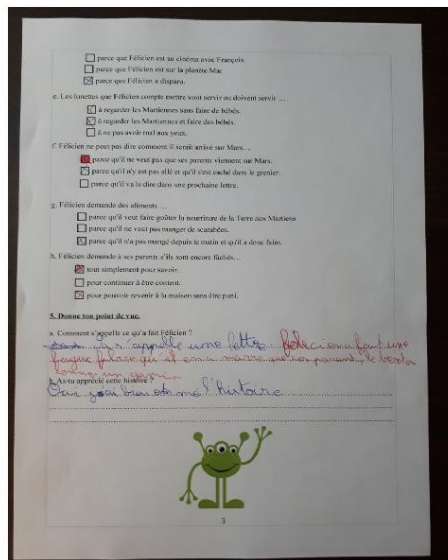 parce que Félicien est au cinéma avec François.
parce que Félicien est sur la planète Mar
parce que Félicien a disparu.
e. Les lunettes que Félicien compte mettre vont servir ou doivent servir …
à regarder les Martiennes sans faire de bébés.
à regarder les Martiennes et faire des bébés.
à ne pas avoir mal aux yeux.
f. Félicien ne peut pas dire comment il serait arrivé sur Mars…
parce qu'il ne veut pas que ses parents viennent sur Mars.
parce qu'il n'y est pas allé et qu'il s'est caché dans le grenier.
parce qu'il va le dire dans une prochaine lettre.
g. Félicien demande des aliments …
parce qu'il veut faire goûter la nourriture de la Terre aux Martiens
parce qu'il ne veut pas manger de scarabées.
parce qu'il n'a pas mangé depuis le matin et qu'il a donc faim
h. Félicien demande à ses parents s'ils sont encore fâchés…
tout simplement pour savoir.
pour continuer à être content.
pour pouvoir revenir à la maison sans être puni.
5. Donne ton point de vue.
a. Comment s'appelle ce qu'a fait Félicien ?
s'appelle une lettre. a fait une
fugue
b. As-tu apprécié cette histoire ?
Oui bien l'histoire
3